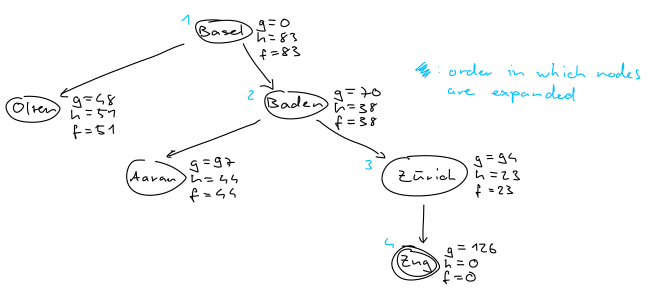 1
Basel
g=0
h=83
f=83
: order in which nodes
are expanded
Olten
g=48
h=51
f=51
2
Baden
g=70
h=38
f=38
Aarau
g=97
h=44
f=44
3
Zürich
g=94
h=23
f=23
4
Zug
g=126
h=0
f=0